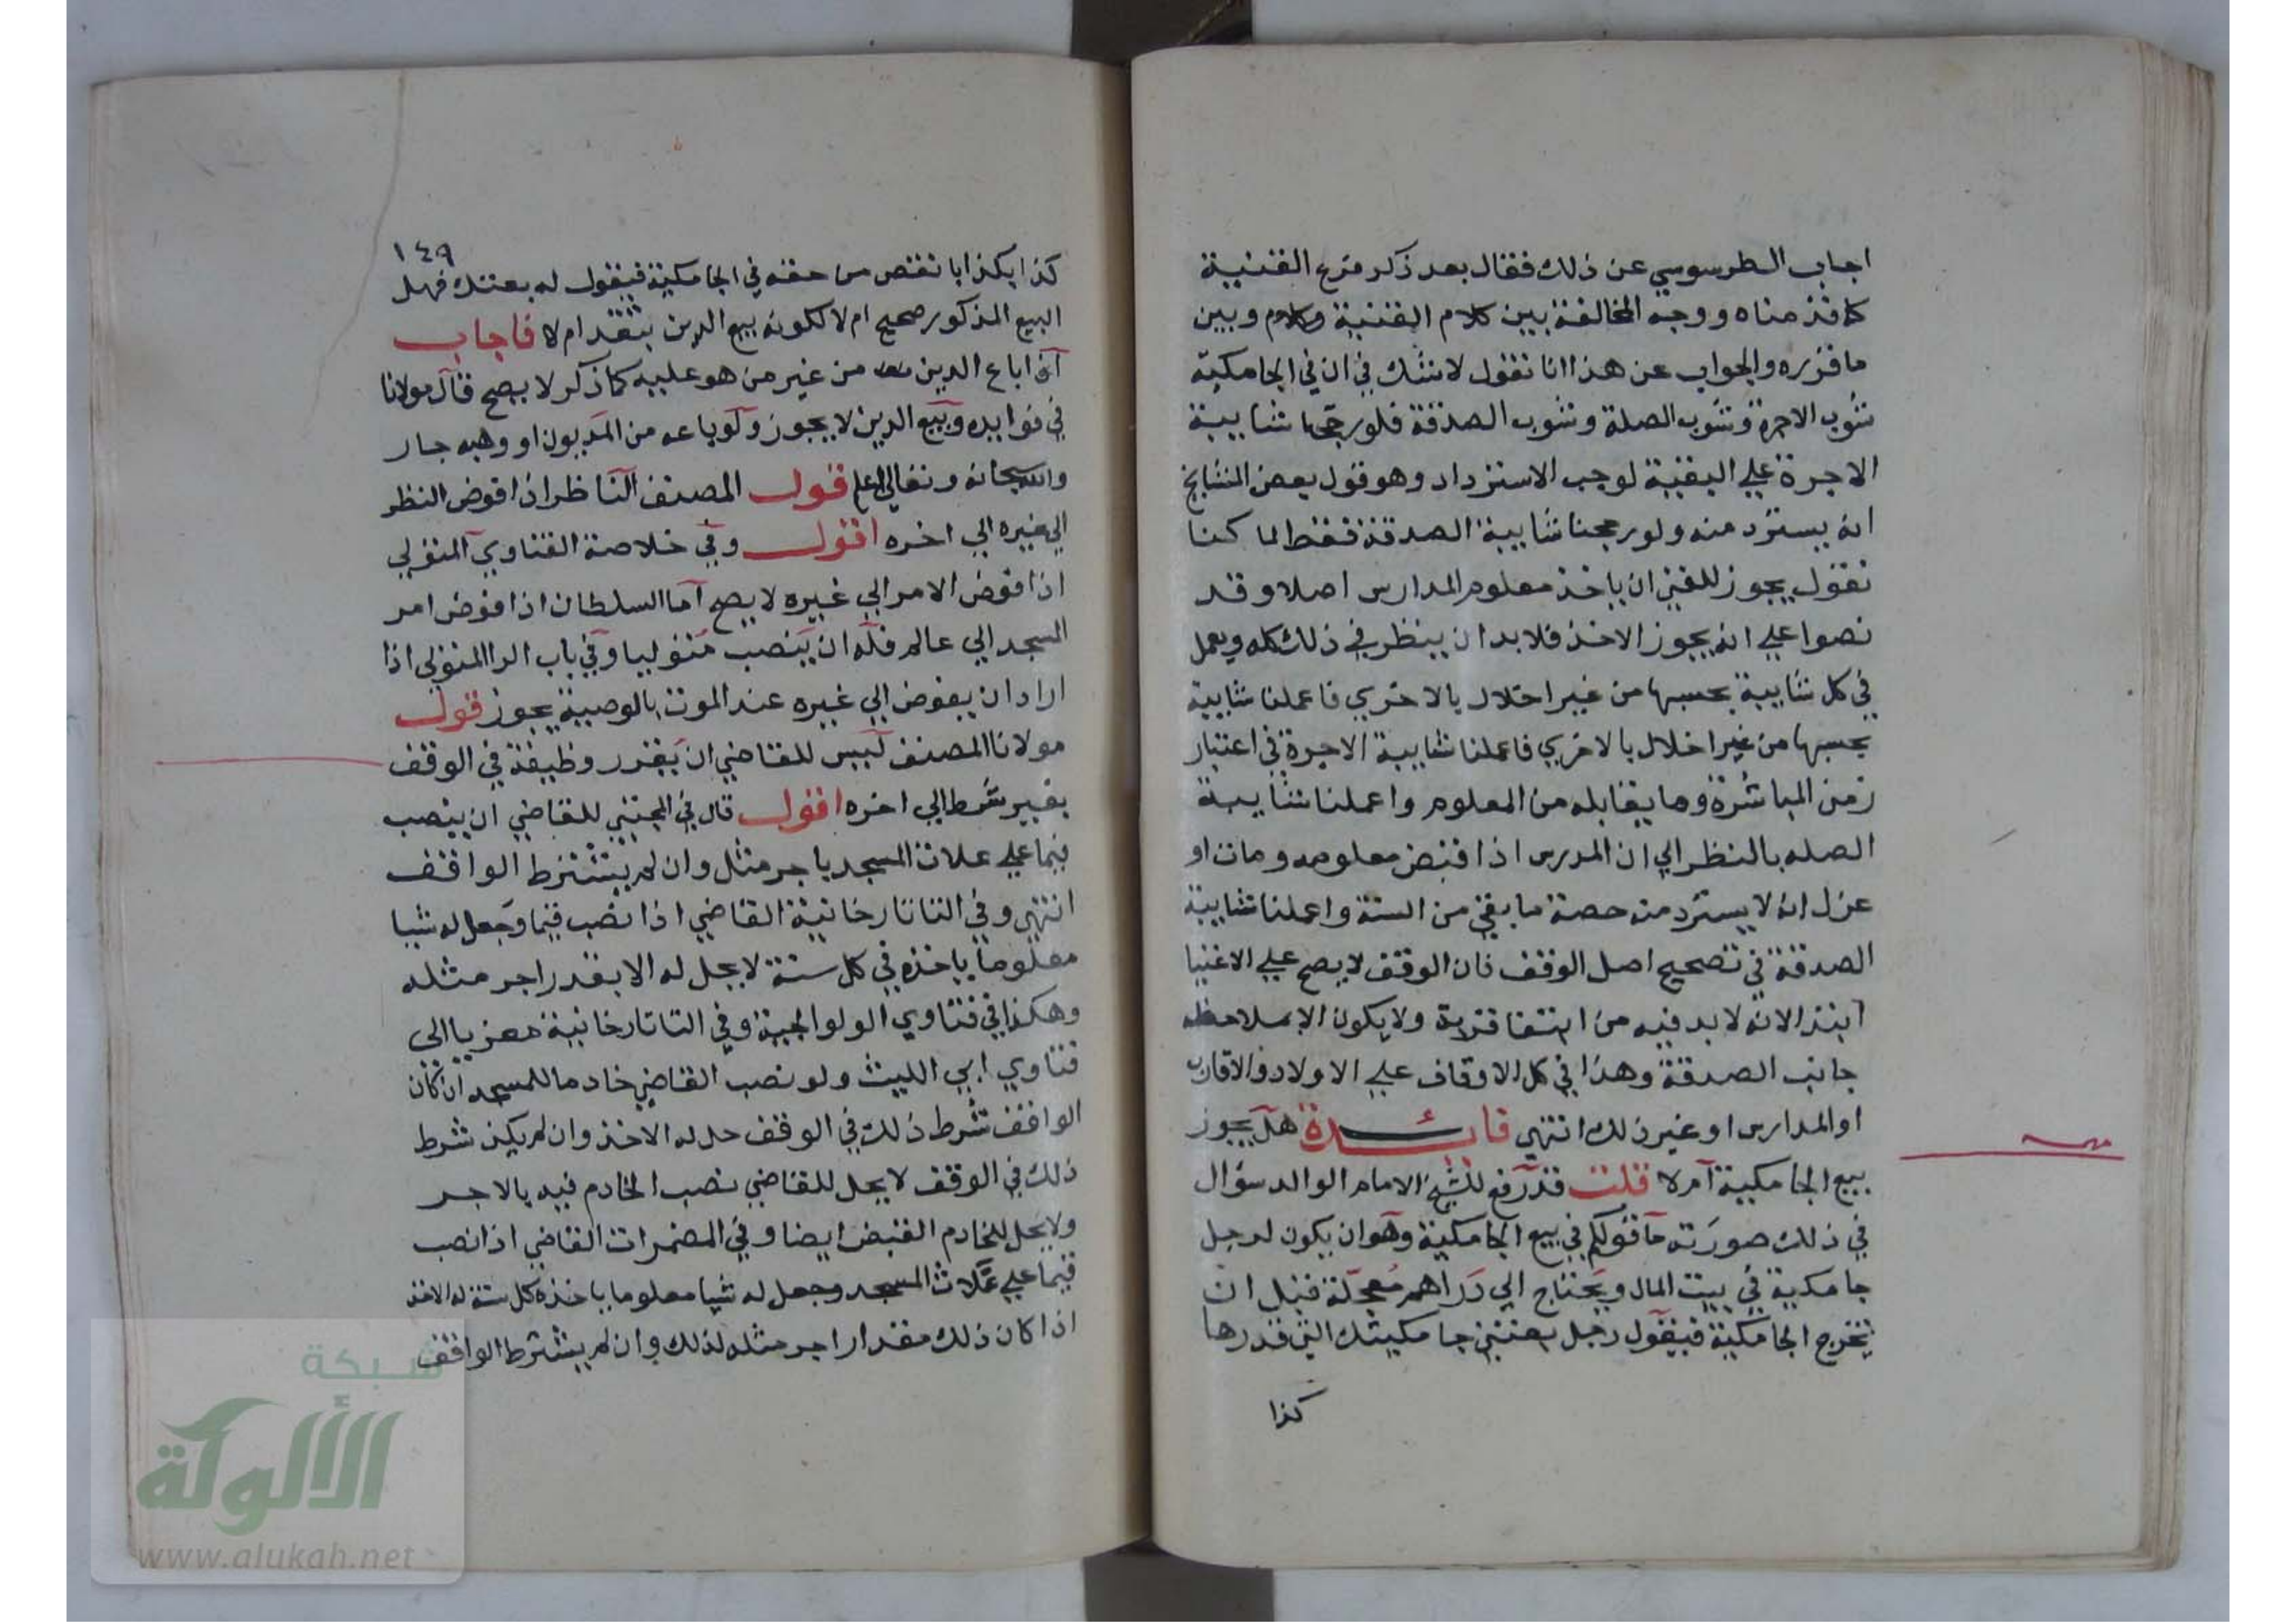 اجاب الطرسوسي عن ذلك فقال بعد ذكر فرع القنية
كما قدمناه ووجه المخالفة بين كلام القنية وكلام وبين
ما قرره والجواب عن هذا انا نقول لا شك في ان في الجامكية
شوب الاجرة وشوب الصلة وشوب الصدقة فلو رجحنا شايبة
الاجرة علي البقية لوجب الاسترداد وهو قول بعض المشايخ
انه يسترد منه ولو رجحنا شايبة الصدقة فقط لما كنا
نقول يجوز للغني ان ياخذ معلوم المدارس اصلا وقد
نصوا علي انه يجوز الاخذ فلا بد ان ينظر في ذلك كله ويعمل
في كل شايبة بحسبها من غير اخلال بالاخري فاعملنا شايبة
بحسبها من غير اخلال بالاخري فاعملنا شايبة الاجرة في اعتبار
زمن المباشرة وما يقابله من المعلوم واعملنا شايبة
الصله بالنظر الي ان المدرس اذا قبض معلومه ومات او
عزل انه لا يسترد منه حصة ما بقي من السنة واعملنا شايبة
الصدقة في تصحيح اصل الوقف فان الوقف لا يصح علي الاغنيا
ابتدا لانه لا بد فيه من ابتغا قربة ولا يكون الا بملاحظة
جانب الصدقة وهذا في كل الاوقاف علي الاولاد والاقارب
او المدارس او غير ذلك انتهي فايدة هل يجوز
بيع الجامكية ام لا قلت قد رفع للشيخ الامام الوالد سؤال
في ذلك صورته ما قولكم في بيع الجامكية وهو ان يكون لرجل
جامكية في بيت المال ويحتاج الي دراهم معجلة قبل ان
تخرج الجامكية فيقول رجل بعتني جامكيتك التي قدرها
كذا
١٤٩
كذا بكذا با نقص من حقه في الجامكية فيقول له بعتك فهل
البيع المذكور صحيح ام لا لكونه بيع الدين بنقد ام لا فاجاب
اذا باع الدين من غير من هو عليه كما ذكر لا يصح قال مولانا
في فوايده وبيع الدين لا يجوز ولو باعه من المديون او وهبه جار
والله سبحانه وتعالي اعلم قول المصنف الناظر اذا فوض النظر
الي غيره الي اخره اقول وفي خلاصة الفتاوي المتولي
اذا فوض الامر الي غيره لا يصح اما السلطان اذا فوض امر
المسجد الي عالم فله ان ينصب متوليا وفي باب الرا المتولي اذا
اراد ان يفوض الي غيره عند الموت بالوصية يجوز قول
مولانا المصنف ليس للقاضي ان يقرر وظيفة في الوقف
بغير شرط الي اخره اقول قال في المجتبي للقاضي ان ينصب
قيما علي غلات المسجد باجر مثل وان لم يشترط الواقف
انتهي وفي التاتارخانية القاضي اذا نصب قيما وجعل له شيا
معلوما ياخذه في كل سنة لا يحل له الا بقدر اجر مثله
وهكذا في فتاوي الولوالجية وفي التاتارخانية معزيا الى
فتاوي ابي الليث ولو نصب القاضي خادما للمسجد ان كان
الواقف شرط ذلك في الوقف حل له الاخذ وان لم يكن شرط
ذلك في الوقف لا يحل للقاضي نصب الخادم فيه بالاجر
ولا يحل للخادم القبض ايضا وفي المضمرات القاضي اذا نصب
قيما علي غلات المسجد وجعل له شيا معلوما ياخذه كل سنة له الاخذ
اذا كان ذلك مقدار اجر مثله لذلك وان لم يشترط الواقف
شبكة
الألوكة
www.alukah.net